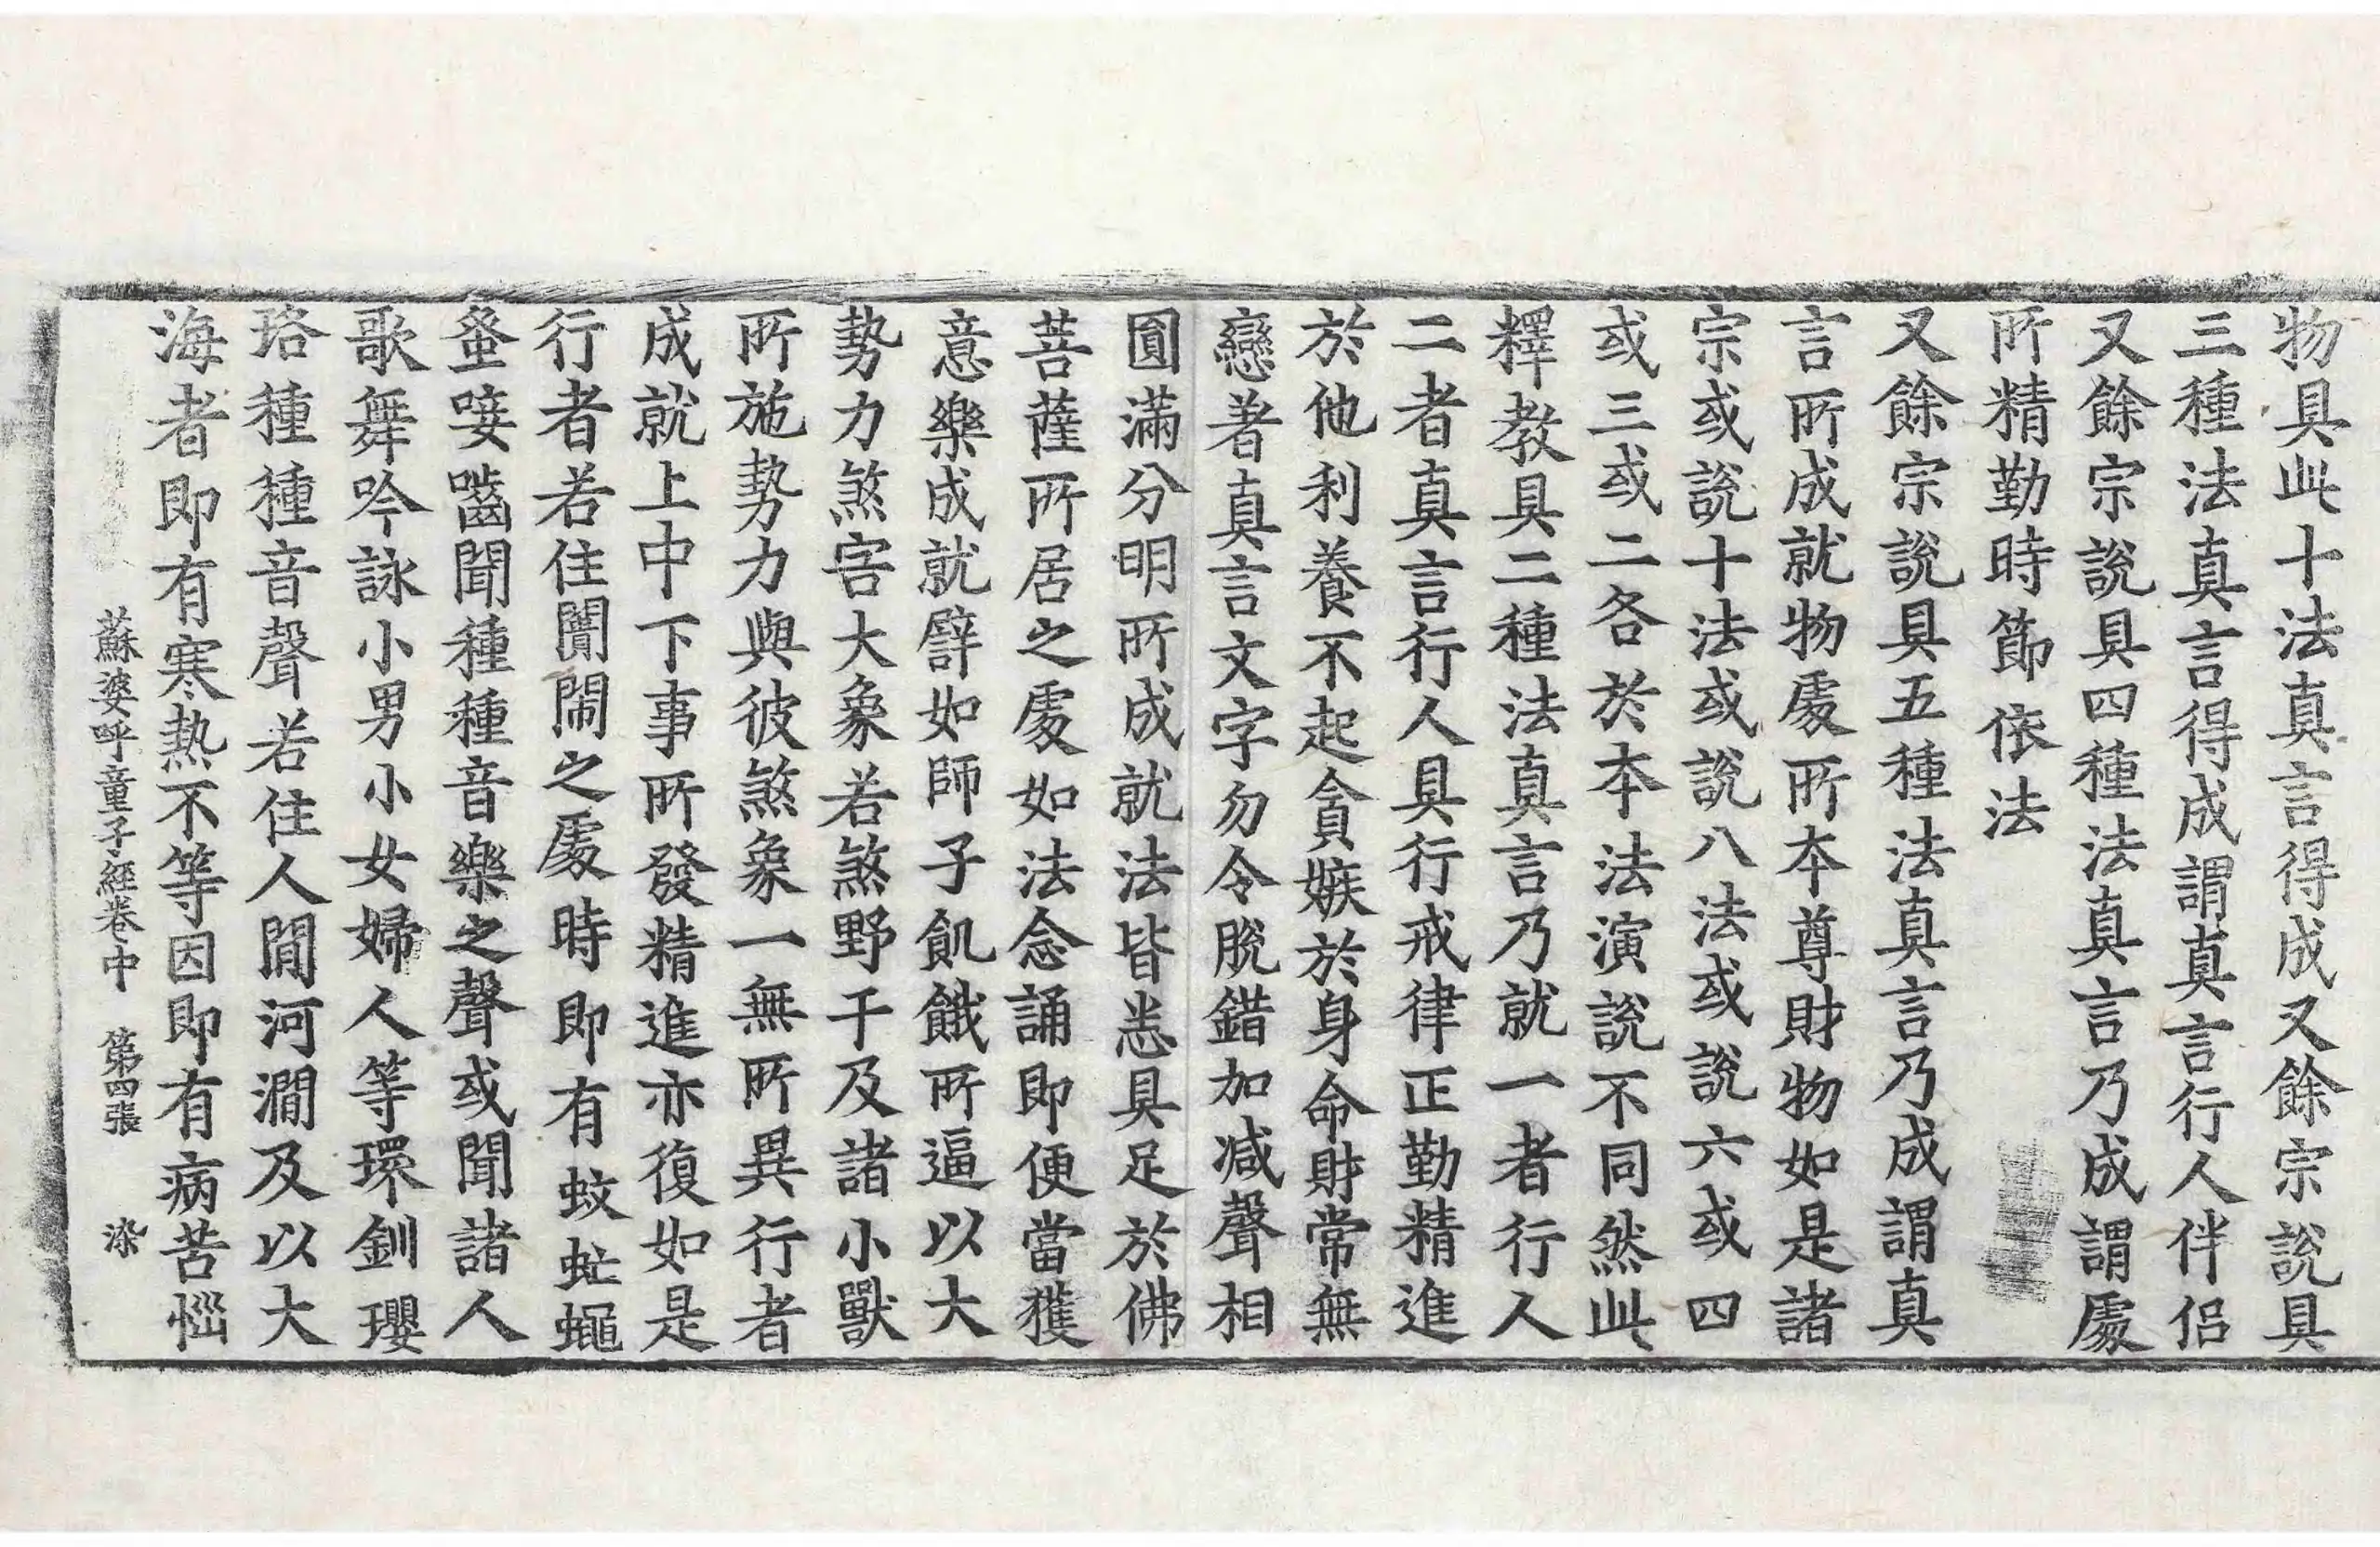 物具此十法真言得成又餘宗說具
三種法真言得成謂真言行人伴侶
又餘宗說具四種法真言乃成謂處
所精勤時節依法
又餘宗說具五種法真言乃成謂真
言所成就物處所本尊財物如是諸
宗或說十法或說八法或說六或四
或三或二各於本法演說不同然此
釋教具二種法真言乃就一者行人
二者真言行人具行戒律正勤精進
於他利養不起貪嫉於身命財常無
戀著真言文字勿令脫錯加减聲相
圓滿分明所成就法皆悉具足於佛
菩薩所居之處如法念誦即便當獲
意樂成就譬如師子飢餓所逼以大
勢力煞害大象若煞野干及諸小獸
所施勢力與彼煞象一無所異行者
成就上中下事所發精進亦復如是
行者若住闠閙之處時即有蚊虻蠅
蚤嘜嚙聞種種音樂之聲或聞諸人
歌舞吟詠小男小女婦人等環釧瓔
珞種種音聲若住人間河澗及以大
海者即有寒熱不等因即有病苦惱
蘇婆呼童子經卷中 第四張 染